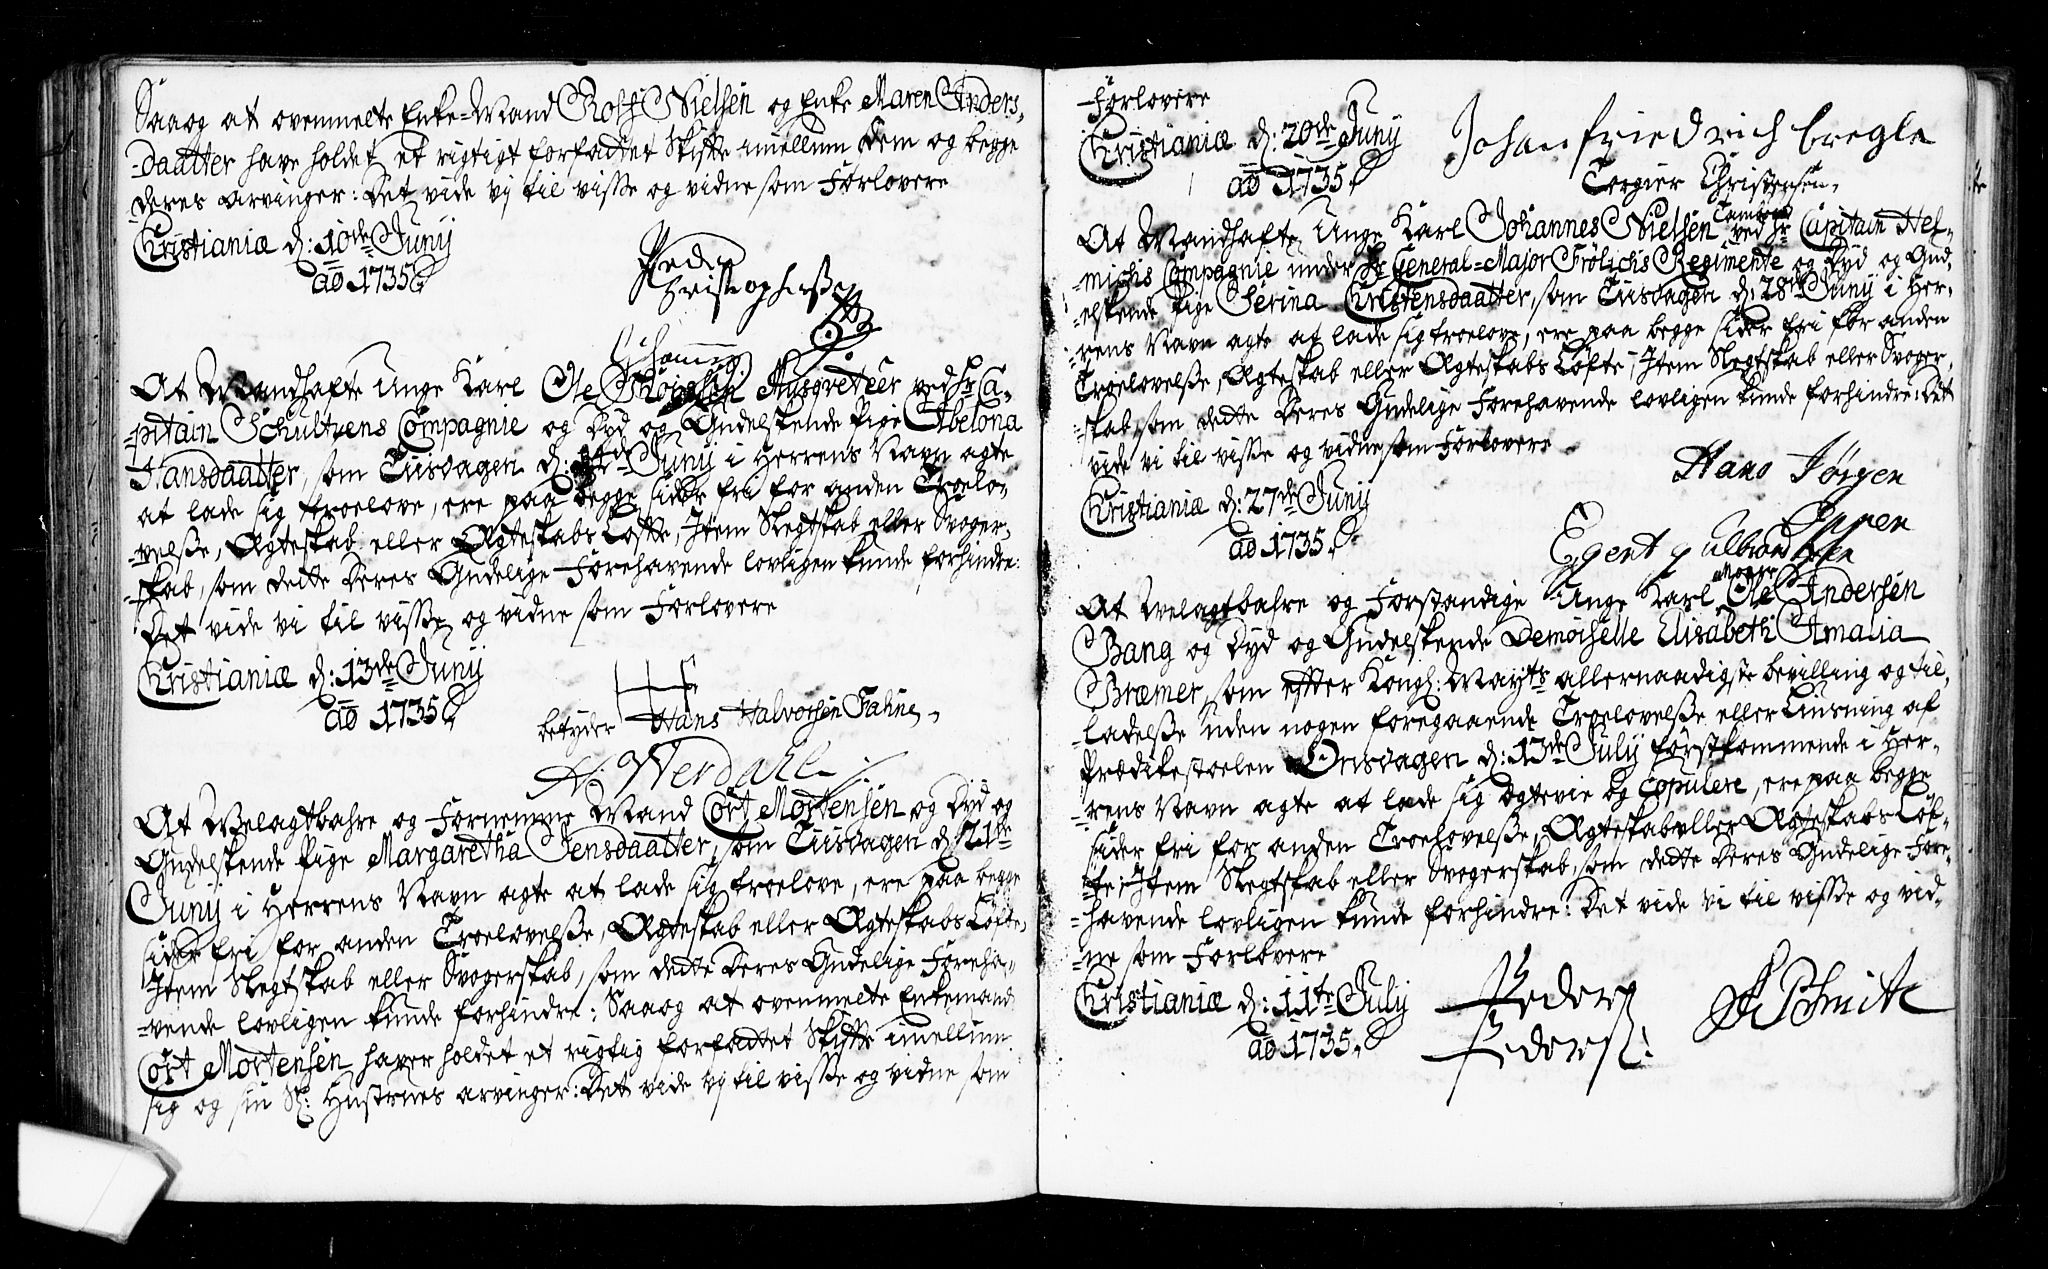 Saaog at ovenmelte Enke-Mand Rolf Nielsen og Enke Maren Anders-
-daatter have holdet et rigtigt forfattet Skifte imellum dem og begge
deres arvinger: Det vide vj til visse og vidne som Forlovere
Christianiæ d: 10de Junij
aō 1735
Peder
Christophersen
At Mandhafte Unge Karl Ole Musqveteer ved Hr Ca-
-pitain Schultzens Compagnie og Dyd og Gudelskende Pige Abelona
Hansdaatter, som Tiisdagen d: Junij i Herrens Navn agte
at lade sig troelove, ere paa begge sider fri for anden Troelo-
-velse, Ægteskab eller Ægteskabs Løfte, Item Slegtskab eller Svoger-
-skab, som dette deres Gudelige Forehavende lovligen kunde forhindre:
Det vide vi til visse og vidne som Forlovere
Christianiæ d: 13de Junij
aō 1735
betyder Hans Halvorsen Fahne
N: Werdahl
At Welagtbahre og Fornemme Mand Cort Mortensen og Dyd og
Gudelskende Pige Margaretha Jensdaatter, som Tiisdagen d: 21te
Junij i Herrens Navn agte at lade sig troelove, ere paa begge
sider fri for anden Troelovelse, Ægteskab eller Ægteskabs Løfte,
Item Slegtskab eller Svogerskab, som dette deres Gudelige Foreha-
-vende lovligen kunde forhindre: Saaog at ovenmelte Enkemand
Cort Mortensen haver holdet et rigtig forfattet Skifte imellum
sig og sin Sl: Hustrues arvinger: Det vide vj til visse og vidne som
Forlovere
Christianiæ d: 20de Junij
aō 1735
Johan friedrich bregle
Torgier Christensen
At Mandhafte Unge Karl Johannes Nielsen Tambour ved Hr Capitain Hel-
-michs Compagnie under Hr General-Major Frölichs Regimente og Dyd og Gud-
-elskende Pige Serina Christensdaatter, som Tiisdagen d: 28de Junij i Her-
-rens Navn agte at lade sig troelove, ere paa begge sider fri for anden
Troelovelse, Ægteskab eller Ægteskabs Løfte, Item Slegtskab eller Svoger-
-skab, som dette deres Gudelige Forehavende lovligen kunde forhindre: Det
vide vi til visse og vidne som Forlovere
Christianiæ d: 27de Junij
aō 1735
Hans Jørgen
Ippren
Egent gulbrandssen
At Welagtbahre og Forstandige Unge Karl Monsr Ole Andersen
Bang og Dyd og Gudelskende Demoiselle Elisabeth Amalia
Bræmer, som efter Kongl: Mayts allernaadigste bevilling og til-
-ladelse uden nogen foregaaende Troelovelse eller Liusning af
Prædikestoelen Onsdagen d: 13de July förstkommende i Her-
-rens Navn agte at lade sig ægtevie og Copulere, ere paa begge
sider fri for anden Troelovelse, Ægteskab eller Ægteskabs Løf-
-te, Item Slegtskab eller Svogerskab, som dette deres Gudelige Fore-
-havende lovligen kunde forhindre: Det vide vi til visse og vid-
-ne som Forlovere
Christianiæ d: 11te July
aō 1735
Peders
Peders:
Schmitt